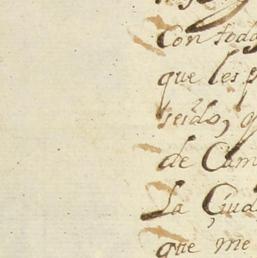 Con toda
que les p
seido, q
de Cam
La Çiud
que me